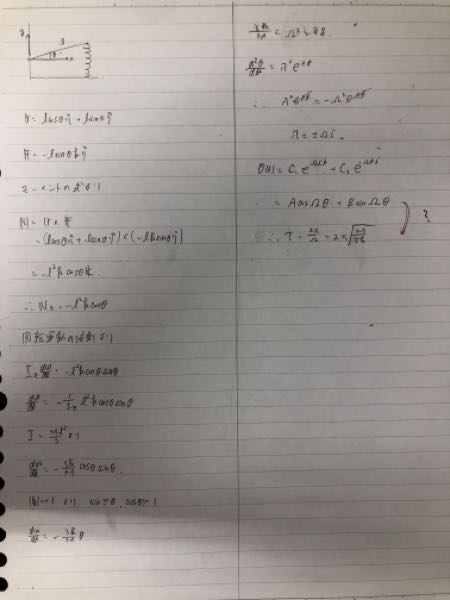 y
l
θ
x
r = lcosθ i + lsinθ j
F = -lsinθ k j
N = r × F
= (lcosθ i + lsinθ j) × (-lk sinθ j)
= -l²k cosθ
∴ N_z = -l²k cosθ
回転運動の法則より
I_z dω/dt = -l²k cosθ sinθ
dω/dt = -1/I_z l²k cosθ sinθ
I = Ml²/3 より
dω/dt = -3k/M cosθ sinθ
|θ|<<1 より sinθ≈θ, cosθ≈1
dω/dt = -3k/M θ
3k/M = Ω² とおき
d²θ/dt² = λ²e^λt
∴ λ²e^λt = -Ω²e^λt
λ = ±Ωi
θ(t) = C₁e^Ωti + C₂e^-Ωti
= AcosΩθ + BsinΩθ
?
∴ T = 2π/Ω = 2π√(M/3k)